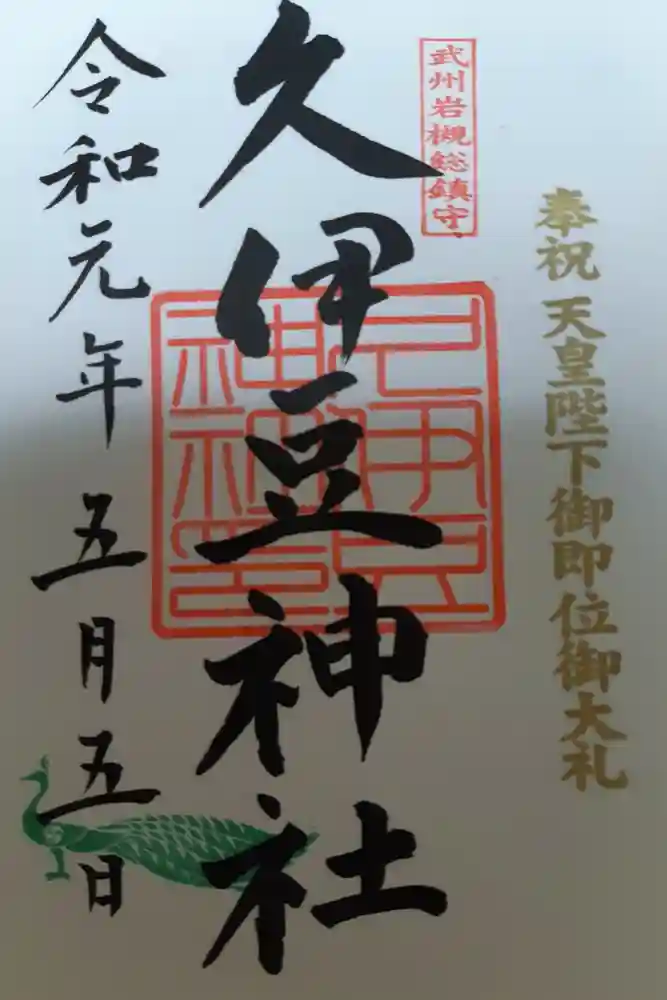 奉祝 天皇陛下御即位御大礼
武州岩槻総鎮守
久伊豆神社
久伊豆
神社印
令和元年 五月五日